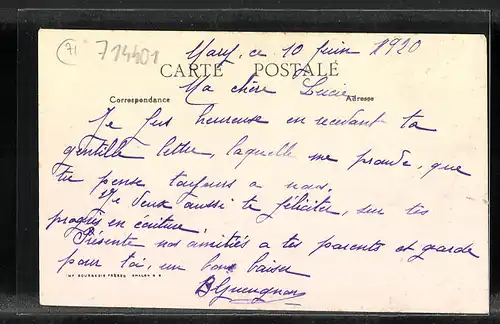 71
714401
Mary, ce 10 Juin 1920
CARTE POSTALE
Ma chère Lucie
Correspondance
Adresse
Je fus heureuse en recevant ta
gentille lettre, laquelle me prouve, que
tu pense toujours a nous.
Je veux aussi te féliciter, sur tes
progrès en écriture.
Présente nos amitiés a tes parents et garde
pour toi, un bon baiser
IMP. BOURGEOIS FRÈRES CHALON S S